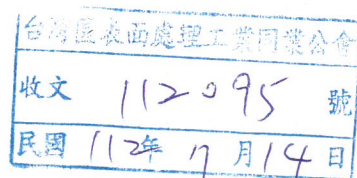 台灣區表面處理工業同業公會
收文 112095 號
民國 112年 7 月 14 日